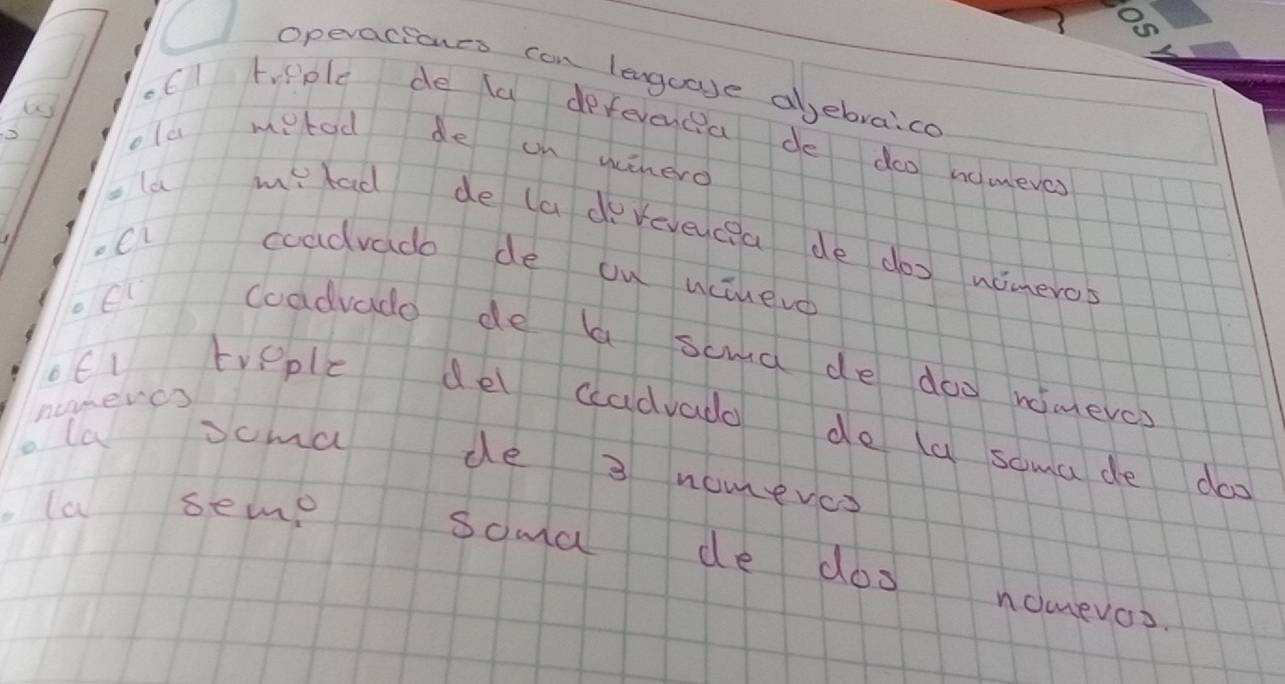 operaciones con lenguaje algebraico
.El triple de la deferencia de dos números
.la mitad de un número
.la mitad de la diferencia de dos números
.el cuadrado de un número
.El cuadrado de la suma de dos números
.El triple del cuadrado de la suma de dos
números
.la suma de 3 numeros
.la semi suma de dos numeros.